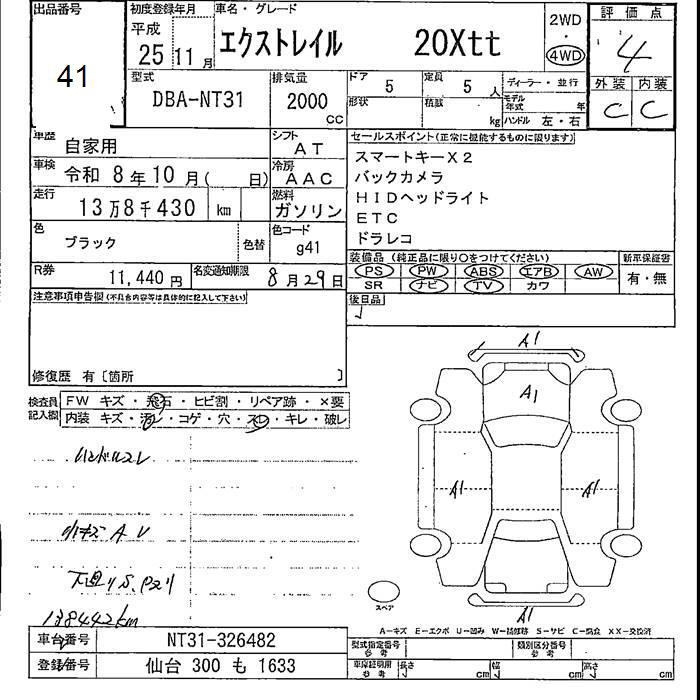 出品番号
41
初度登録年月
平成
25 11月
車名・グレード
エクストレイル 20Xtt
2WD
・
4WD
評価点
4
外装 内装
C C
型式
DBA-NT31
排気量
2000
CC
ドア
5
定員
5 人
形状
積載
kg
ディーラー・並行
モデル年式
年
ハンドル 左・右
車歴
自家用
シフト
AT
車検
令和 8年10月( 日)
冷房
AAC
走行
13万8千430 km
燃料
ガソリン
色
ブラック
色替
色コード
g41
R券
11,440円
名変通知期限
8月29日
セールスポイント(正常に機能するものに限ります)
スマートキーX2
バックカメラ
HIDヘッドライト
ETC
ドラレコ
装備品 (純正品に限り○をつけてください)
PS PW ABS エアB AW
SR ナビ TV カワ
新車保証書
有・無
後日品
注意事項申告欄(不具合内容等は具体的に記入して下さい)
修復歴 有〔箇所 〕
検査員記入欄
FW キズ・飛石・ヒビ割・リペア跡・×要
内装 キズ・汚レ・コゲ・穴・スレ・キレ・破レ
ハンドルスレ
小キズ A U
下廻りS、Pスリ
138442km
A1
A1
A1
A1
A1
スペア
A−キズ E−エクボ U−凹み W−補修跡 S−サビ C−腐食 XX−交換済
車台番号
NT31-326482
登録番号
仙台 300 も 1633
型式指定番号
参考
類別区分番号
参考
車庫証明用
参考
長さ
cm
幅
cm
高さ
cm